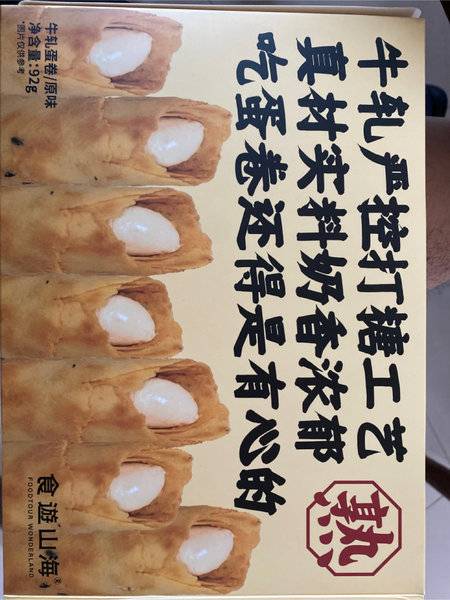 牛轧严控打糖工艺
真材实料奶香浓郁
吃蛋卷还得是有心的
熟
牛轧蛋卷/原味
净含量:92g
*图片仅供参考
食遊山海®
FOODTOUR WONDERLAND